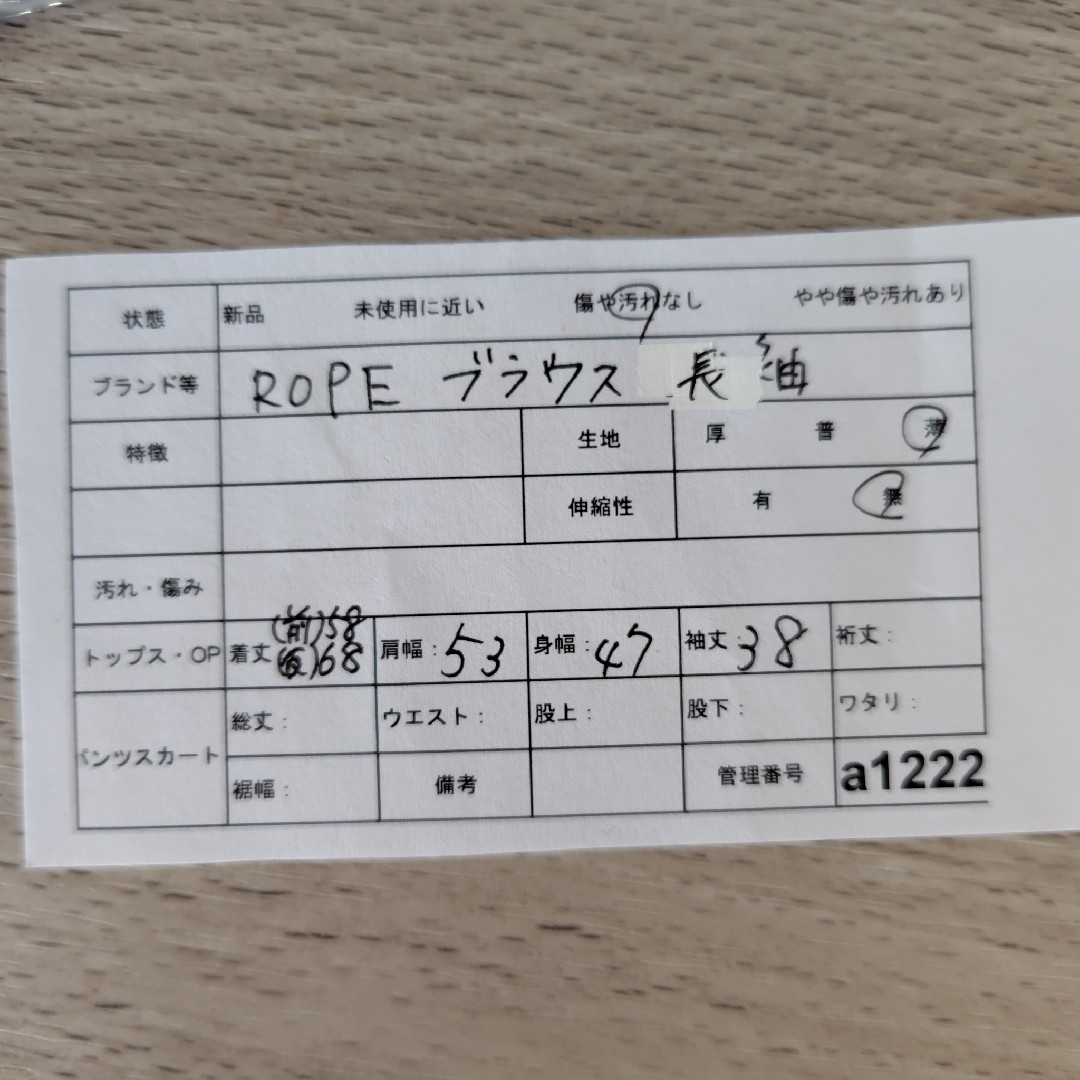 状態 新品 未使用に近い 傷や汚れなし やや傷や汚れあり
ブランド等 ROPE ブラウス 長袖
特徴 生地 厚 普 薄
伸縮性 有 無
汚れ・傷み
トップス・OP 着丈 (前)58 肩幅:53 身幅:47 袖丈:38 裄丈:
(後)68
パンツスカート 総丈: ウエスト: 股上: 股下: ワタリ:
裾幅: 備考 管理番号 a1222